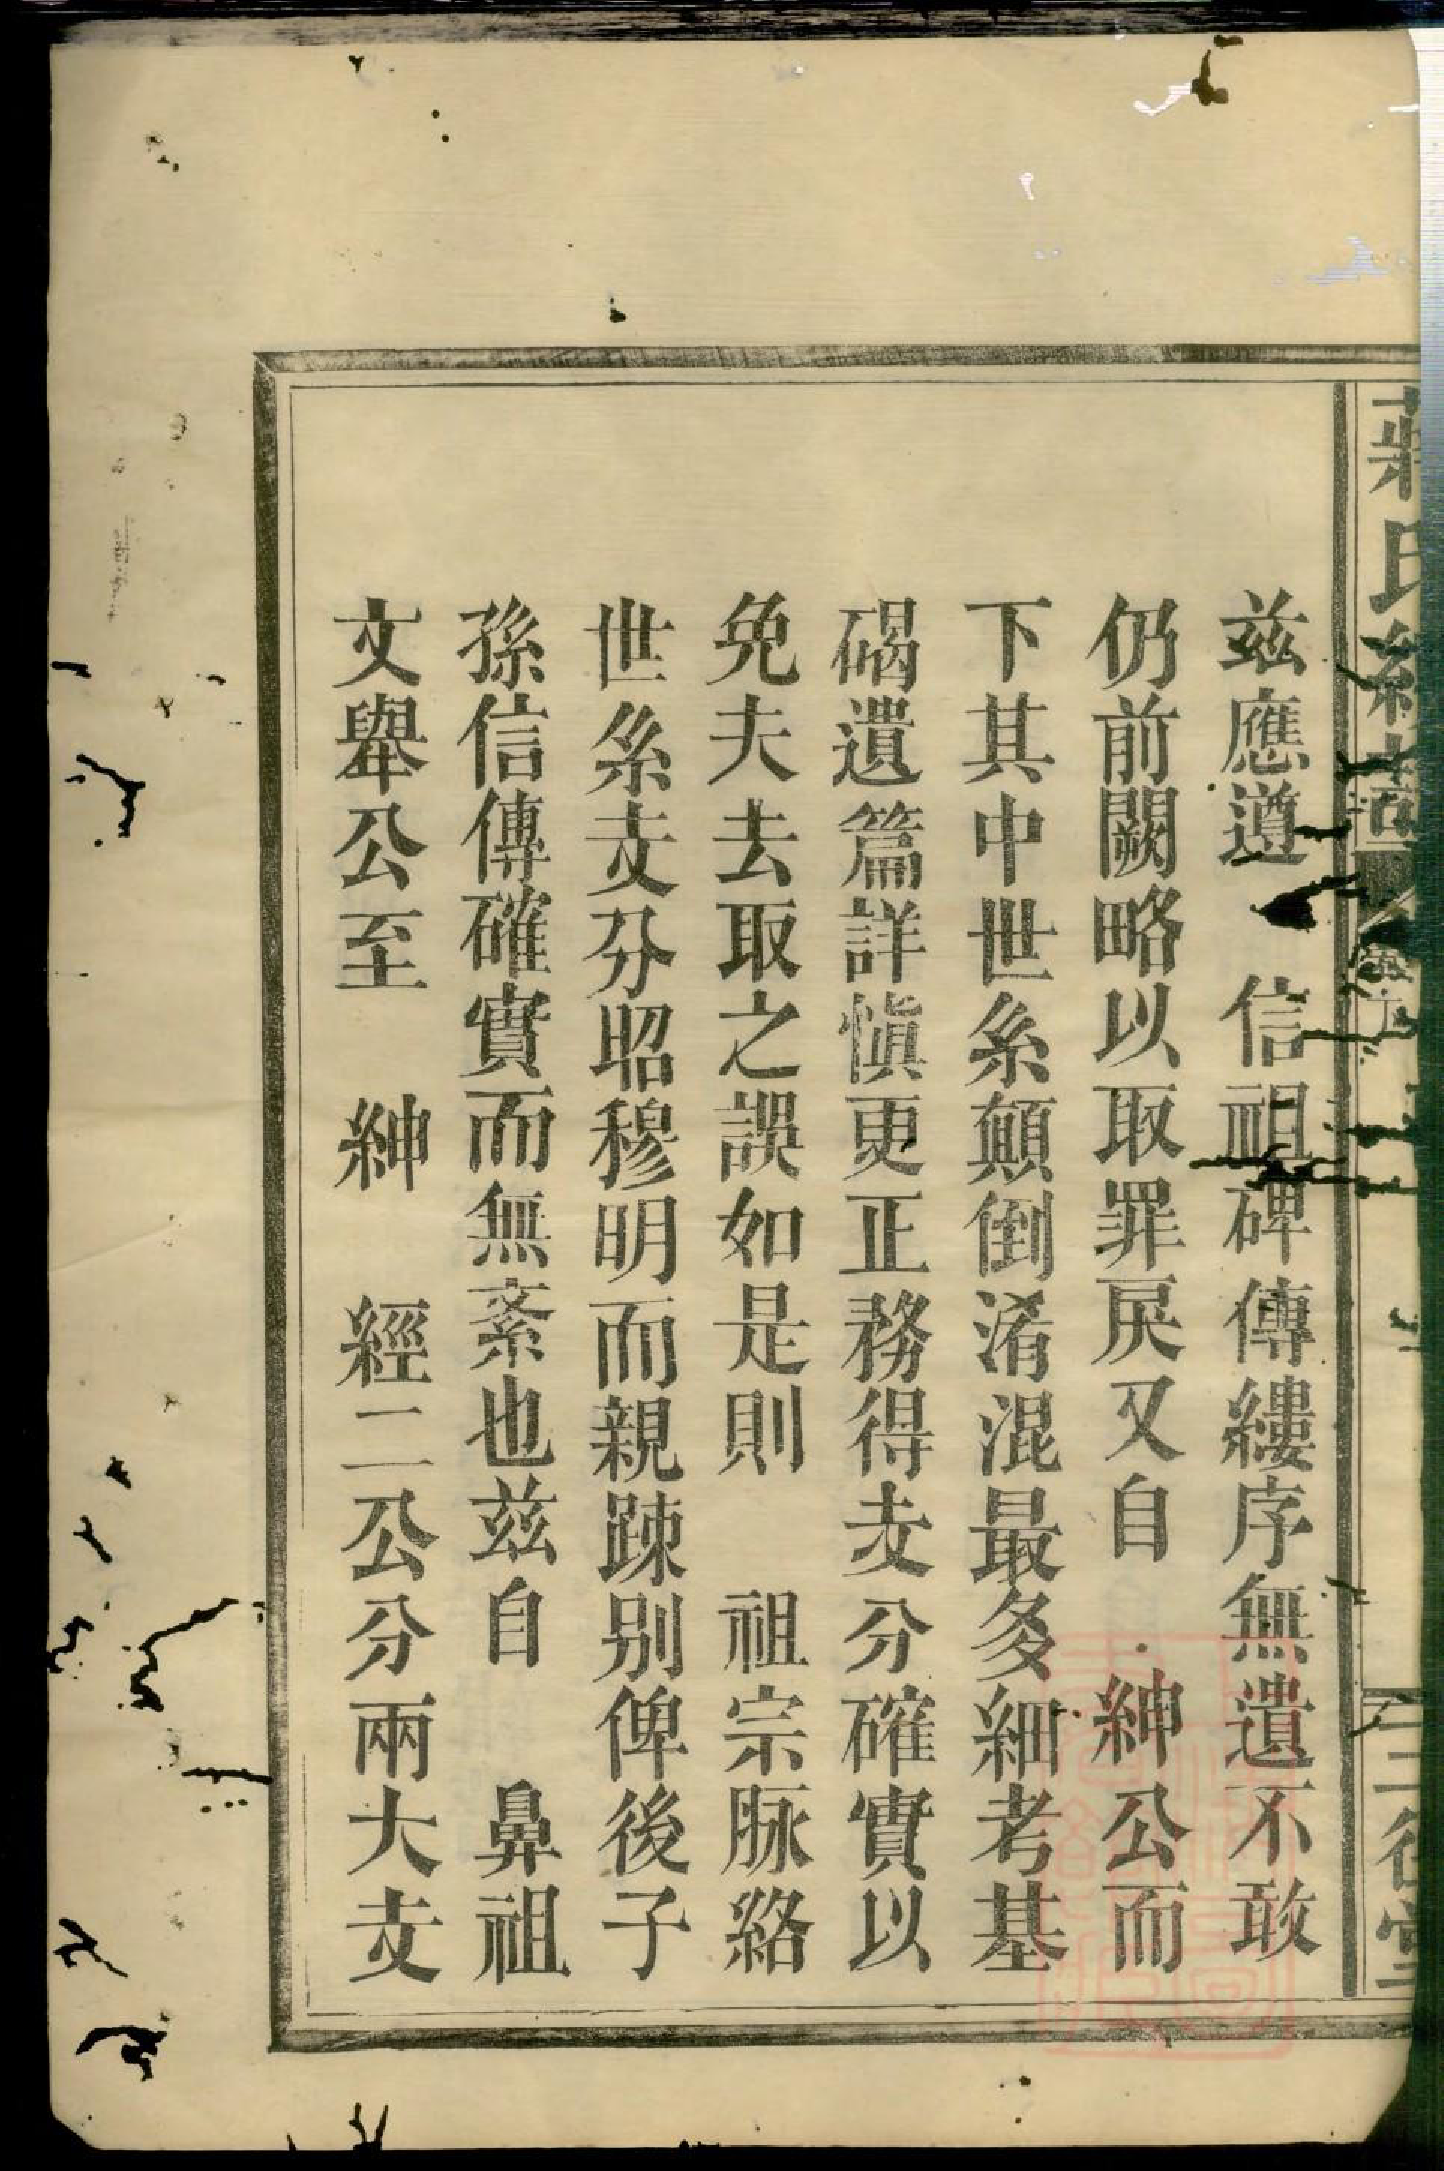 蔣氏
三徑堂
兹應遵　信祖碑傳縷序無遺不敢
仍前闕略以取罪戾又自　紳公而
下其中世系顛倒淆混最多細考基
碣遺篇詳慎更正務得支分確實以
免夫去取之誤如是則　祖宗脉絡
世系支分昭穆明而親踈别俾後子
孫信傳確實而無紊也兹自　鼻祖
文舉公至　紳　經二公分兩大支